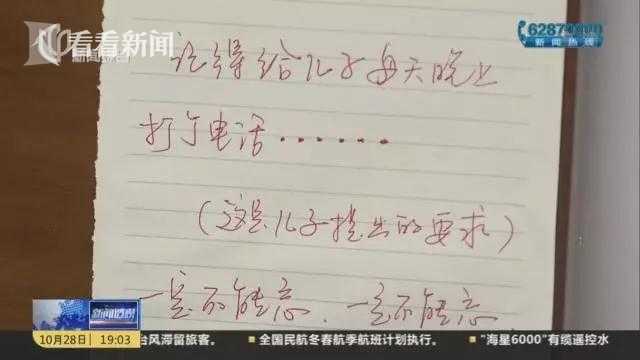 看看新闻
新闻热线
记得给儿子每天晚上
打个电话······
(这是儿子提出的要求)
一定不能忘、一定不能忘
新闻透视
10月28日 19:03 台风滞留旅客。 ■ 全国民航冬春航季航班计划执行。 ■ “海星6000”有缆遥控水